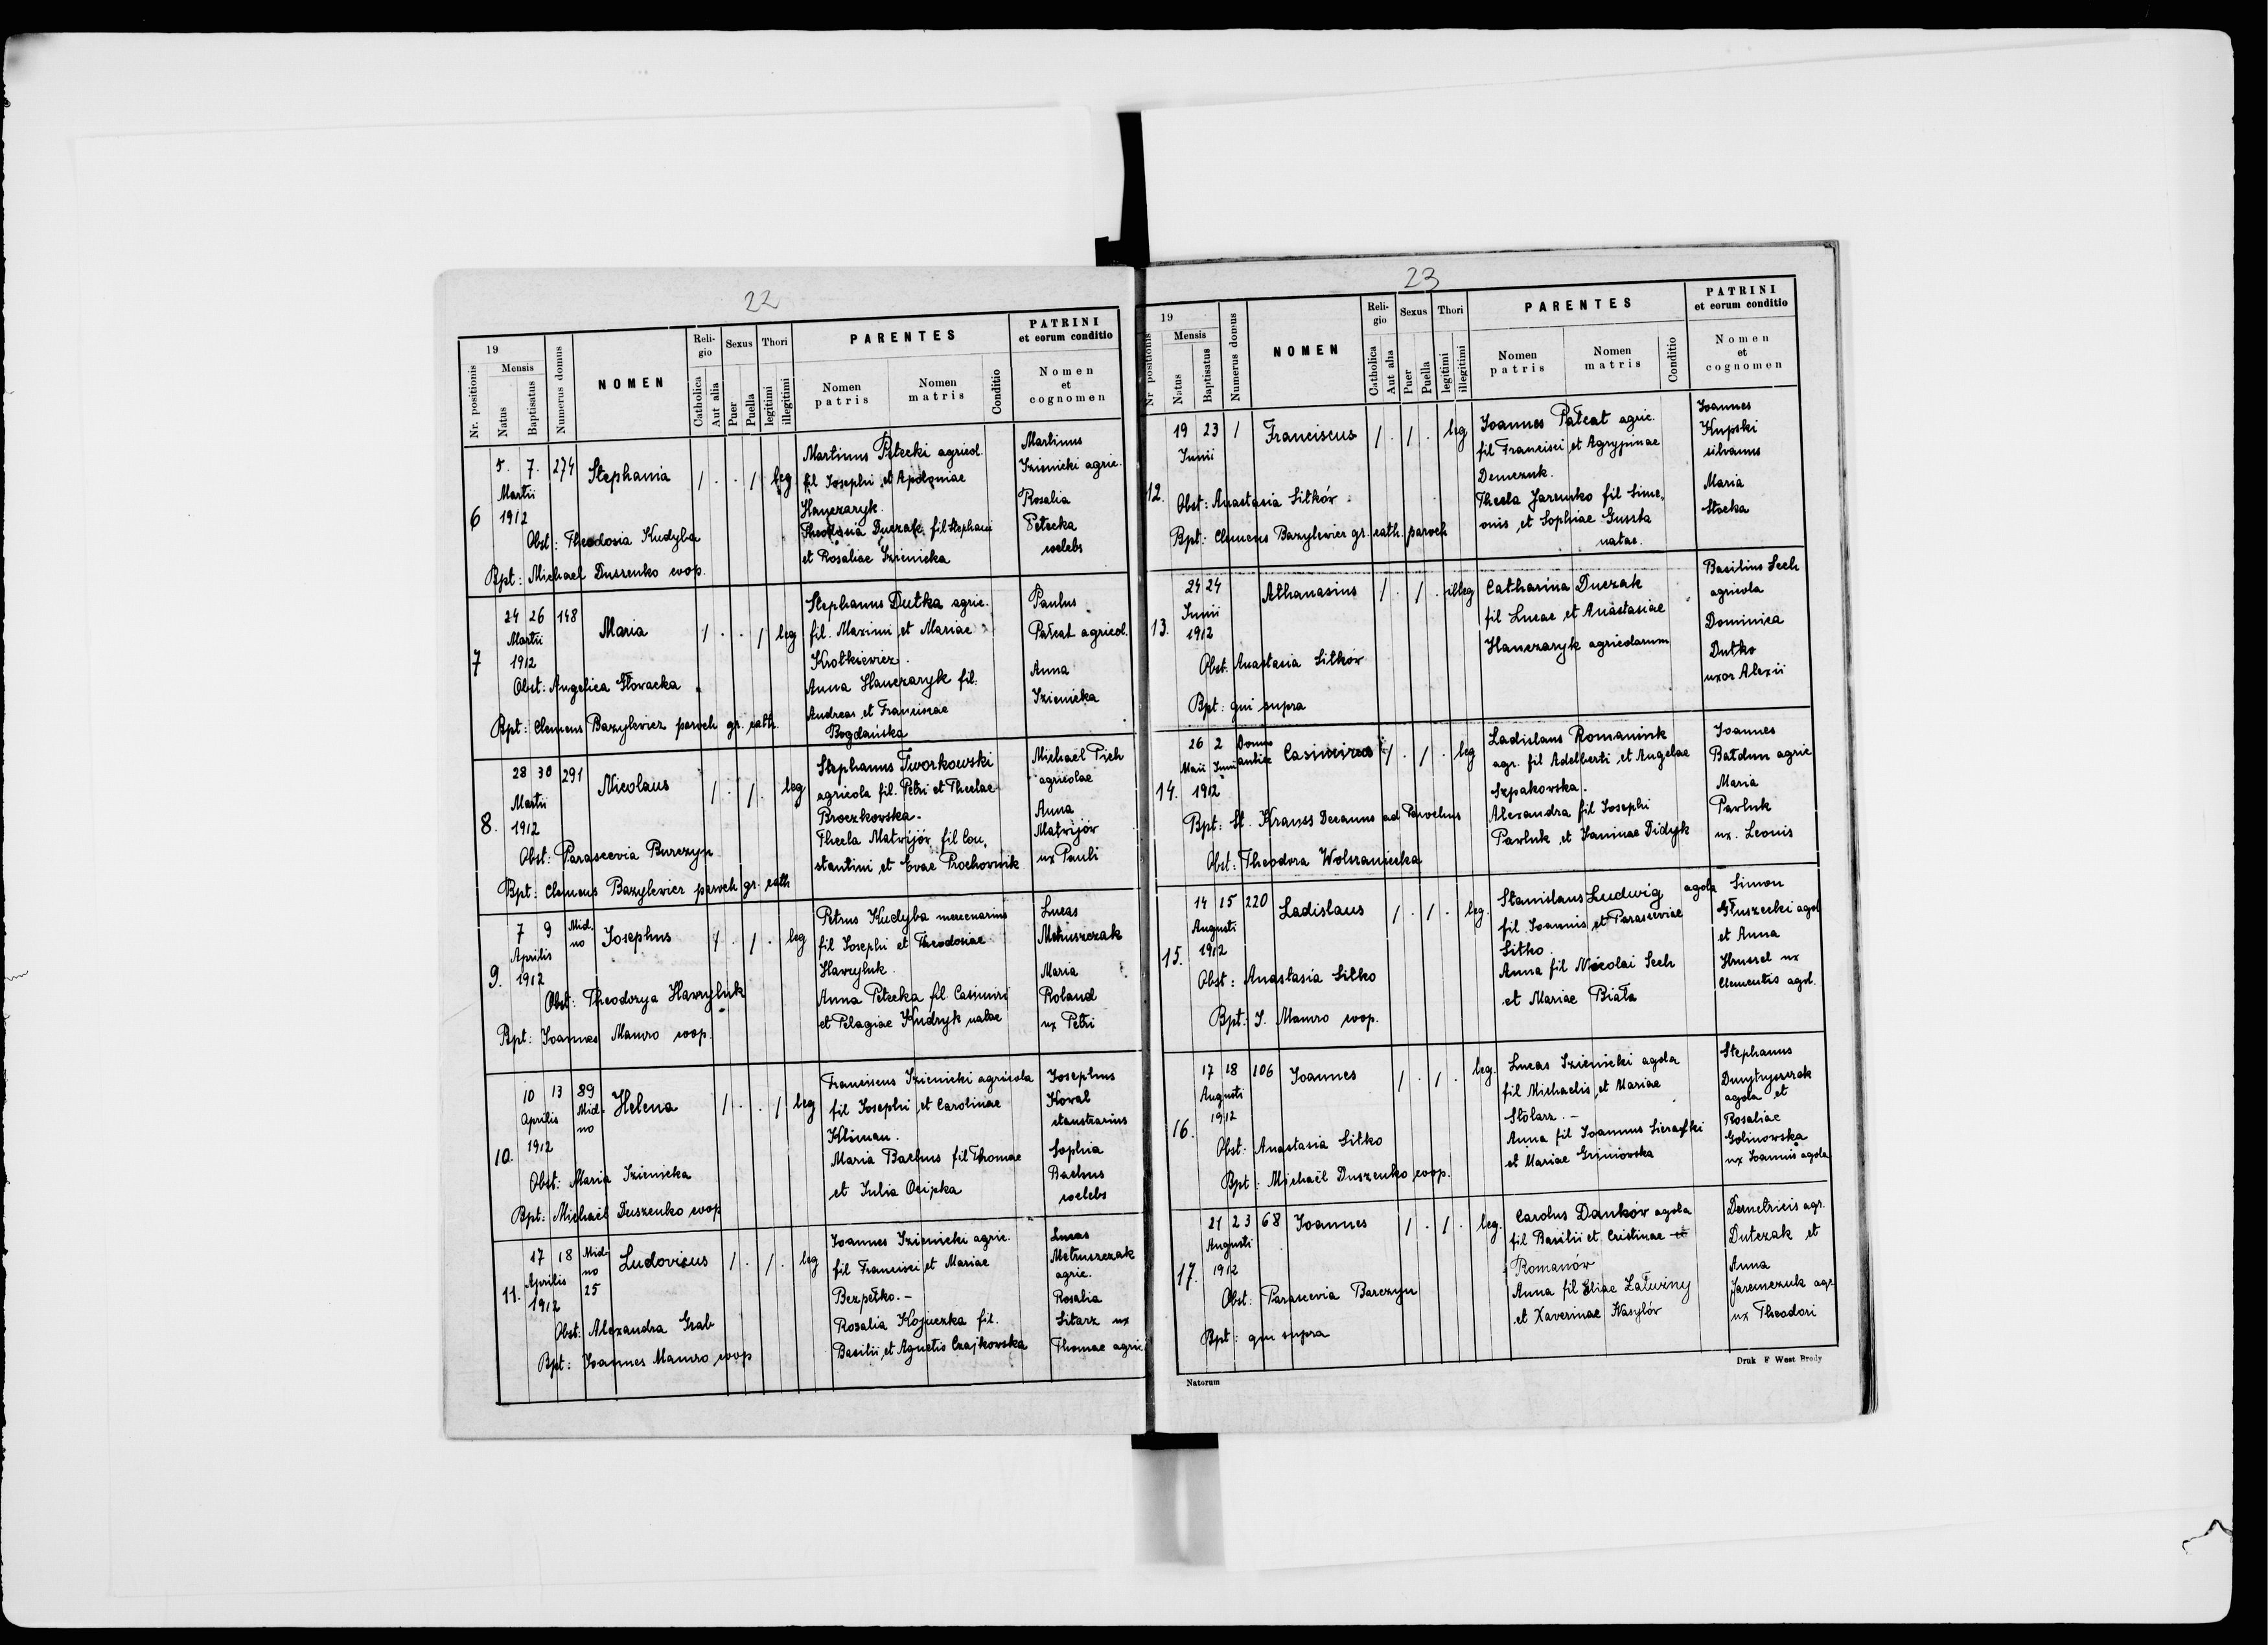 22
19
Mensis
Nr. positionis
Natus
Baptisatus
Numerus domus
NOMEN
Reli-
gio
Catholica
Aut alia
Sexus
Puer
Puella
Thori
legitimi
illegitimi
PARENTES
Nomen
patris
Nomen
matris
Conditio
PATRINI
et eorum conditio
Nomen
et
cognomen
6
5. 7. 274 Stephania / . . / leg
Martii
1912
Obst: Theodosia Kudyba
Bpt: Michael Duszenko coop.
Martinus Petecki agricol.
fil Josephi et Apoloniae
Hanczaryk.
Theodosia Duczak fil Stephani
et Rosaliae Izienicka
Martinus
Izienicki agric.
Rosalia
Petecka
coelebs
7
24 26 148 Maria / . . / leg
Martii
1912
Obst: Angelica Głowacka
Bpt: Clemens Bazylewicz paroch gr. cath.
Stephanus Dutka agric.
fil. Maximi et Mariae
Krotkiewicz.
Anna Hanczaryk fil.
Andreas et Franciscae
Bogdańska
Paulus
Pałcat agricol.
Anna
Izienicka
8.
28 30 291 Nicolaus / . / . leg
Martii
1912
Obst: Parascevia Burczyn
Bpt: Clemens Bazylewicz paroch gr. cath
Stephanus Tworkowski
agricola fil. Petri et Theclae
Broczkowska.
Thecla Matwijów fil Con,
stantini et Evae Prochownik
Michael Pich
agricolae
Anna
Matwijów
ux Pauli
9.
7 9 Mid- Josephus / . / . leg
no
Aprilis
1912
Obst: Theodorya Hawryluk
Bpt: Joannes Mauro coop.
Petrus Kudyba mercenarius
fil Josephi et Theodosiae
Hawryluk.
Anna Petecka fil. Casimiri
et Pelagiae Kudryk natae
Lucas
Metruszczak
Maria
Roland
ux Petri
10.
10 13 89 Helena / . . / leg
Aprilis Mid-
no
1912
Obst: Maria Izienicka
Bpt: Michaël Duszenko coop
Franciscus Izienicki agricola
fil Josephi et Carolinae
Kliman.
Maria Bachus fil Thomae
et Julia Osipka
Josephus
Kowal
Sophia
Bachus
coelebs
11.
17 18 Mid- Ludovicus / . / . leg
no
Aprilis 25
1912
Obst: Alexandra Grab
Bpt: Joannes Mauro coop
Joannes Izienicki agric.
fil Francisci et Mariae
Bezpełko. -
Rosalia Kojuczka fil.
Basilii et Agnetis Czajkowska
Lucas
Metruszczak
agric.
Rosalia
Sitarz ux
Thomae agric
23
19
Mensis
Nr positionis
Natus
Baptisatus
Numerus domus
NOMEN
Reli-
gio
Catholica
Aut alia
Sexus
Puer
Puella
Thori
legitimi
illegitimi
PARENTES
Nomen
patris
Nomen
matris
Conditio
PATRINI
et eorum conditio
Nomen
et
cognomen
12.
19 23 1 Franciscus / . / . leg
Junii
Obst: Anastasia Sitków
Bpt: Clemens Bazylewicz gr. cath. paroch
Joannes Pałcat agric.
fil Francisci et Agrypinae
Demczuk.
Thecla Jaremko fil Sime,
onis et Sophiae Guszta
natae.
Joannes
Kupski
silvanus
Maria
Stocka
13.
24 24 Athanasius / . / . illeg
Junii
1912
Obst. Anastasia Sitków
Bpt: qui supra
Catharina Duczak
fil Lucae et Anastasiae
Hanczaryk agricolarum
Basilius Sech
agricola
Dominica
Dutko
uxor Alexii
14.
26 2 Domus Casimirus / . / . leg
Maii Junii
1912
Bpt: St. Krauss Decanus ad Parochus
Obst: Theodora Wolszaniecka
Ladislaus Romaniuk
agr. fil Adelberti et Angelae
Szpakowska.
Alexandra fil Josephi
Pawluk et Janinae Didyk
Joannes
Bałdun agric
Maria
Pawluk
ux. Leonis
15.
14 15 220 Ladislaus / . / . leg.
Augusti
1912
Obst: Anastasia Sitko
Bpt: J. Mauro coop.
Stanislaus Ludwig agola
fil Joannis et Parasceviae
Sitko.
Anna fil Nicolai Sech
et Mariae Biała
Simon
Głuszecki agol
et Anna
Hrussel ux
Clementis agol.
16.
17 18 106 Joannes / . / . leg.
Augusti
1912
Obst: Anastasia Sitko
Bpt: Michaël Duszenko coop.
Lucas Izienicki agola
fil Michaelis et Mariae
Stolarz. -
Anna fil Joannus Sierawski
et Mariae Griniowska
Stephanus
Dmytryszczak
agola et
Rosaliae
Golinowska
ux Joannis agola
17.
21 23 68 Joannes / . / . leg.
Augusti
1912
Obst: Parascevia Barczyn
Bpt: qui supra
Carolus Danków agola
fil Basilii et Cristinae et
Romanów
Anna fil Eliae Załuzny
et Xaverinae Wasylów
Demetrius agr.
Dutczak et
Anna
Jaremczuk agr.
ux Theodori
Natorum
Druk F West Brody